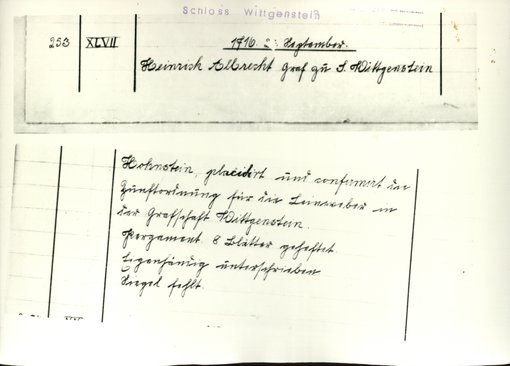 Schloss Wittgenstein
253 XLVII 1716. 2. September.
Heinrich Albrecht Graf zu S. Wittgenstein
Hohnstein, placidirt und confirmirt die
Zunftordnung für die Leinweber in
der Grafschaft Wittgenstein.
Pergament 8 Blätter geheftet.
Eigenhändig unterschrieben
Siegel fehlt.